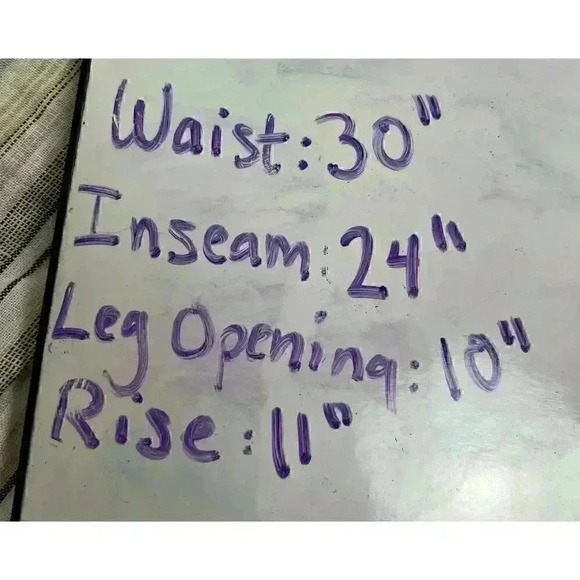 Waist: 30"
Inseam: 24"
Leg Opening: 10"
Rise: 11"